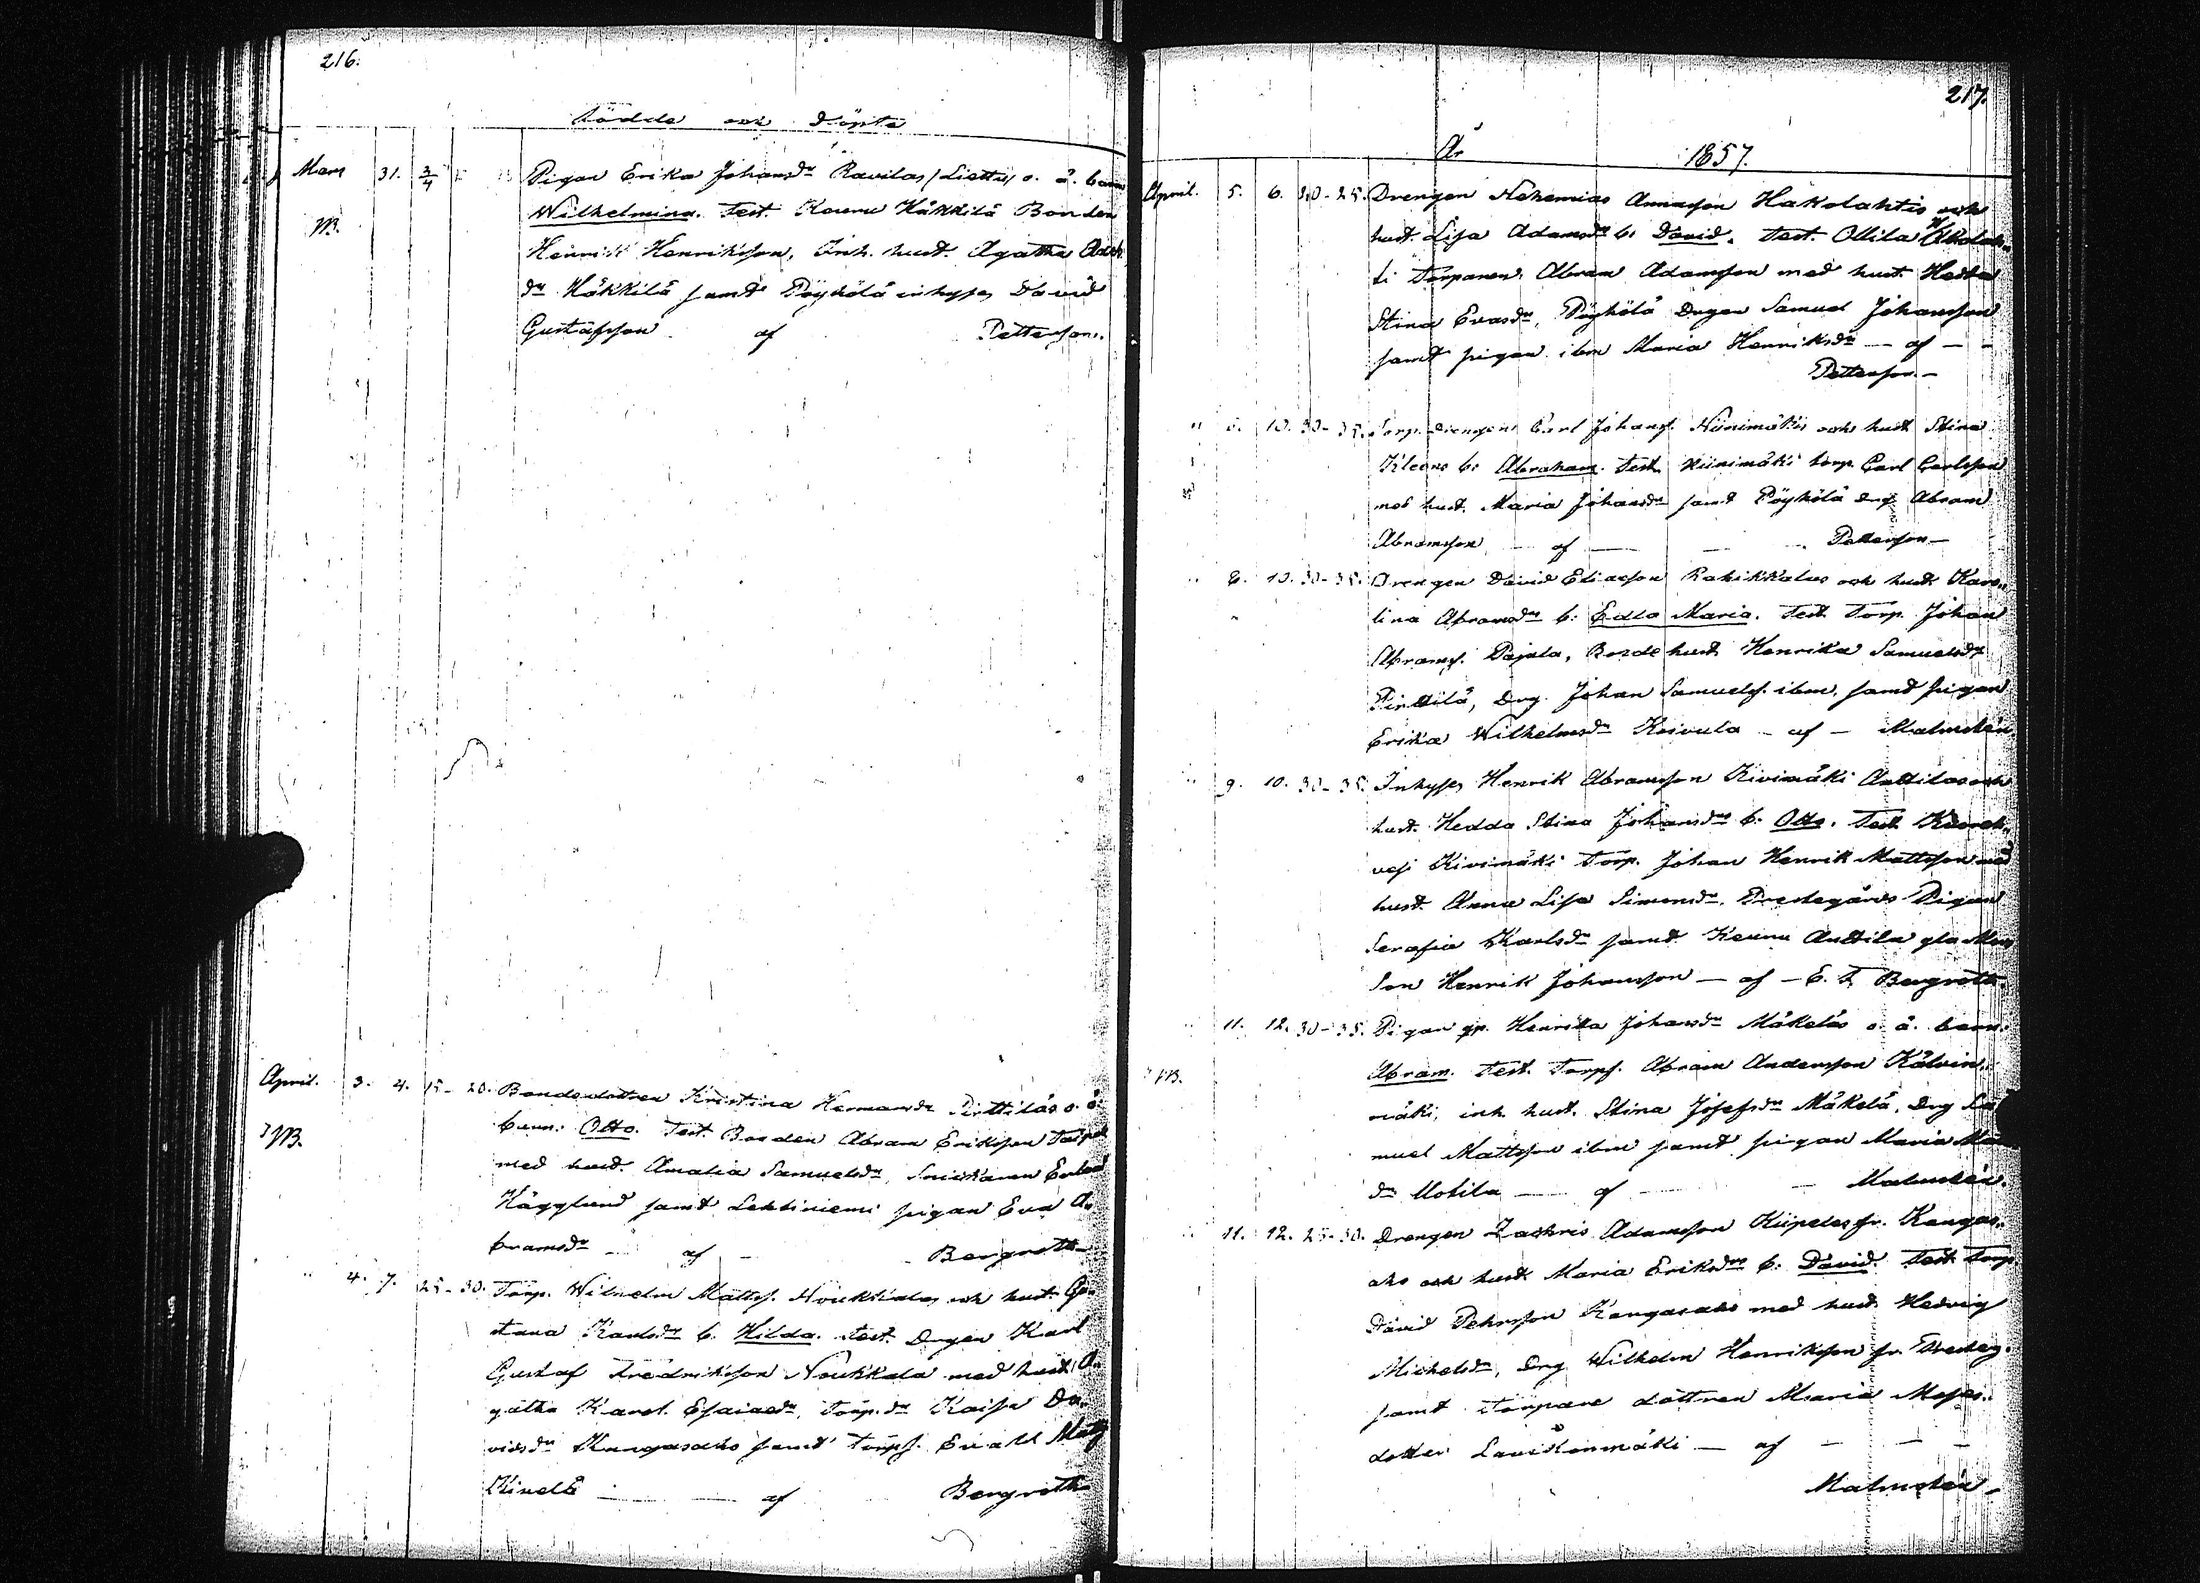 216.
Födde och Döpte
Mars 31. 3/4 Pigan Erika Johansdr Ravilas (Liettu) o. ä. barn
Wilhelmina. Test. Keunu Häkkilä Bonden
M. Heinrik Henriksson, Inh. hust. Agatha
dr Häkkilä samt Pöyhölä inhyses David
Gustafsson af Petterson.
April. 3. 4. 15-20. Bondedottren Kristina Hermansdr Pirttilás o. ä.
M. barn: Otto. Test. Bonden Abram Eriksson
med hust. Amalia Samuelsdr, Snickaren
Hägglund samt Lehtiniemi pigan Eva A-
bramsdr af Bergroth
" 4. 7. 25-30. Torp. Wilhelm Matts. Noukkalas och hust. Gu-
stava Karlsdr b. Hilda. Test. Drgen Karl
Gustaf Fredriksson Noukkala med hust. A-
gatha Karol. Esaiasdr, Torp.dr Kaisa Da-
vidsdr Kangasaho samt Torps. Evald Matts
Kinelä af Bergroth
217.
År 1857.
April. 5. 6. 20-25. Drengen Nehemias Annasson Hakolahtis och
hust. Lisa Adamsdr b. David. Test. Ollila Hakolah-
ti Torparen Abram Adamsson med hust. Hedda
Stina Evasdr, Pöyhölä Drgen Samuel Johansson
samt pigan ibm Maria Henriksdr — af —
Petterson —
" 5. 10. 30-35. Torp. Drengen Carl Johans. Niinimäkis och hust. Stina
b: Abraham. Test. Niinimäki torp. Carl Carlsson
med hust. Maria Johansdr samt Pöyhölä drg. Abram
Abramsson — af — Petterson —
" 6. 10. 30-35. Drengen David Eliasson Rahikkalas och hust. Karo-
lina Abramsdr b: Edla Maria. Test. Torp. Johan
Abrams. Pajula, Bondehust. Henrika Samuelsdr
Pirttilä, Drg. Johan Samuels. ibm, samt pigan
Erika Wilhelmsdr Koivula — af — Malmstén.
" 9. 10. 30-35. Inhyses Henrik Abramsson Kivimäki Anttilas och
hust. Hedda Stina Johansdr b. Otto. Test.
Kivimäki Torp. Johan Henrik Mattsson med
hust. Anna Lisa Simonsdr, Prestegårds Pigan
Serafia Karlsdr samt Keunu Anttila
Son Henrik Johansson — af — E. T. Bergroth.
" 11. 12. 30-35. Pigan Henrika Johansdr Mäkeläs o. ä. barn:
M. Abram. Test. Torps. Abram Andersson Kälvin-
mäki, inh. hust. Stina Josefsdr Mäkelä, Drg Sa-
muel Mattsson ibm samt pigan Maria
dr Uotila — af — Malmstén.
" 11. 12. 25-30. Drengen Zachris Adamsson Kiipelas fr. Kangas-
aho och hust. Maria Eriksdr b. David. Test. torp.
David Pehrsson Kangasaho med hust. Hedvig
Michelsdr, Drg Wilhelm Henriksson fr. Presteg.
samt Torpare dottren Maria Moses-
dotter Lauikonmäki — af —
Malmstén.